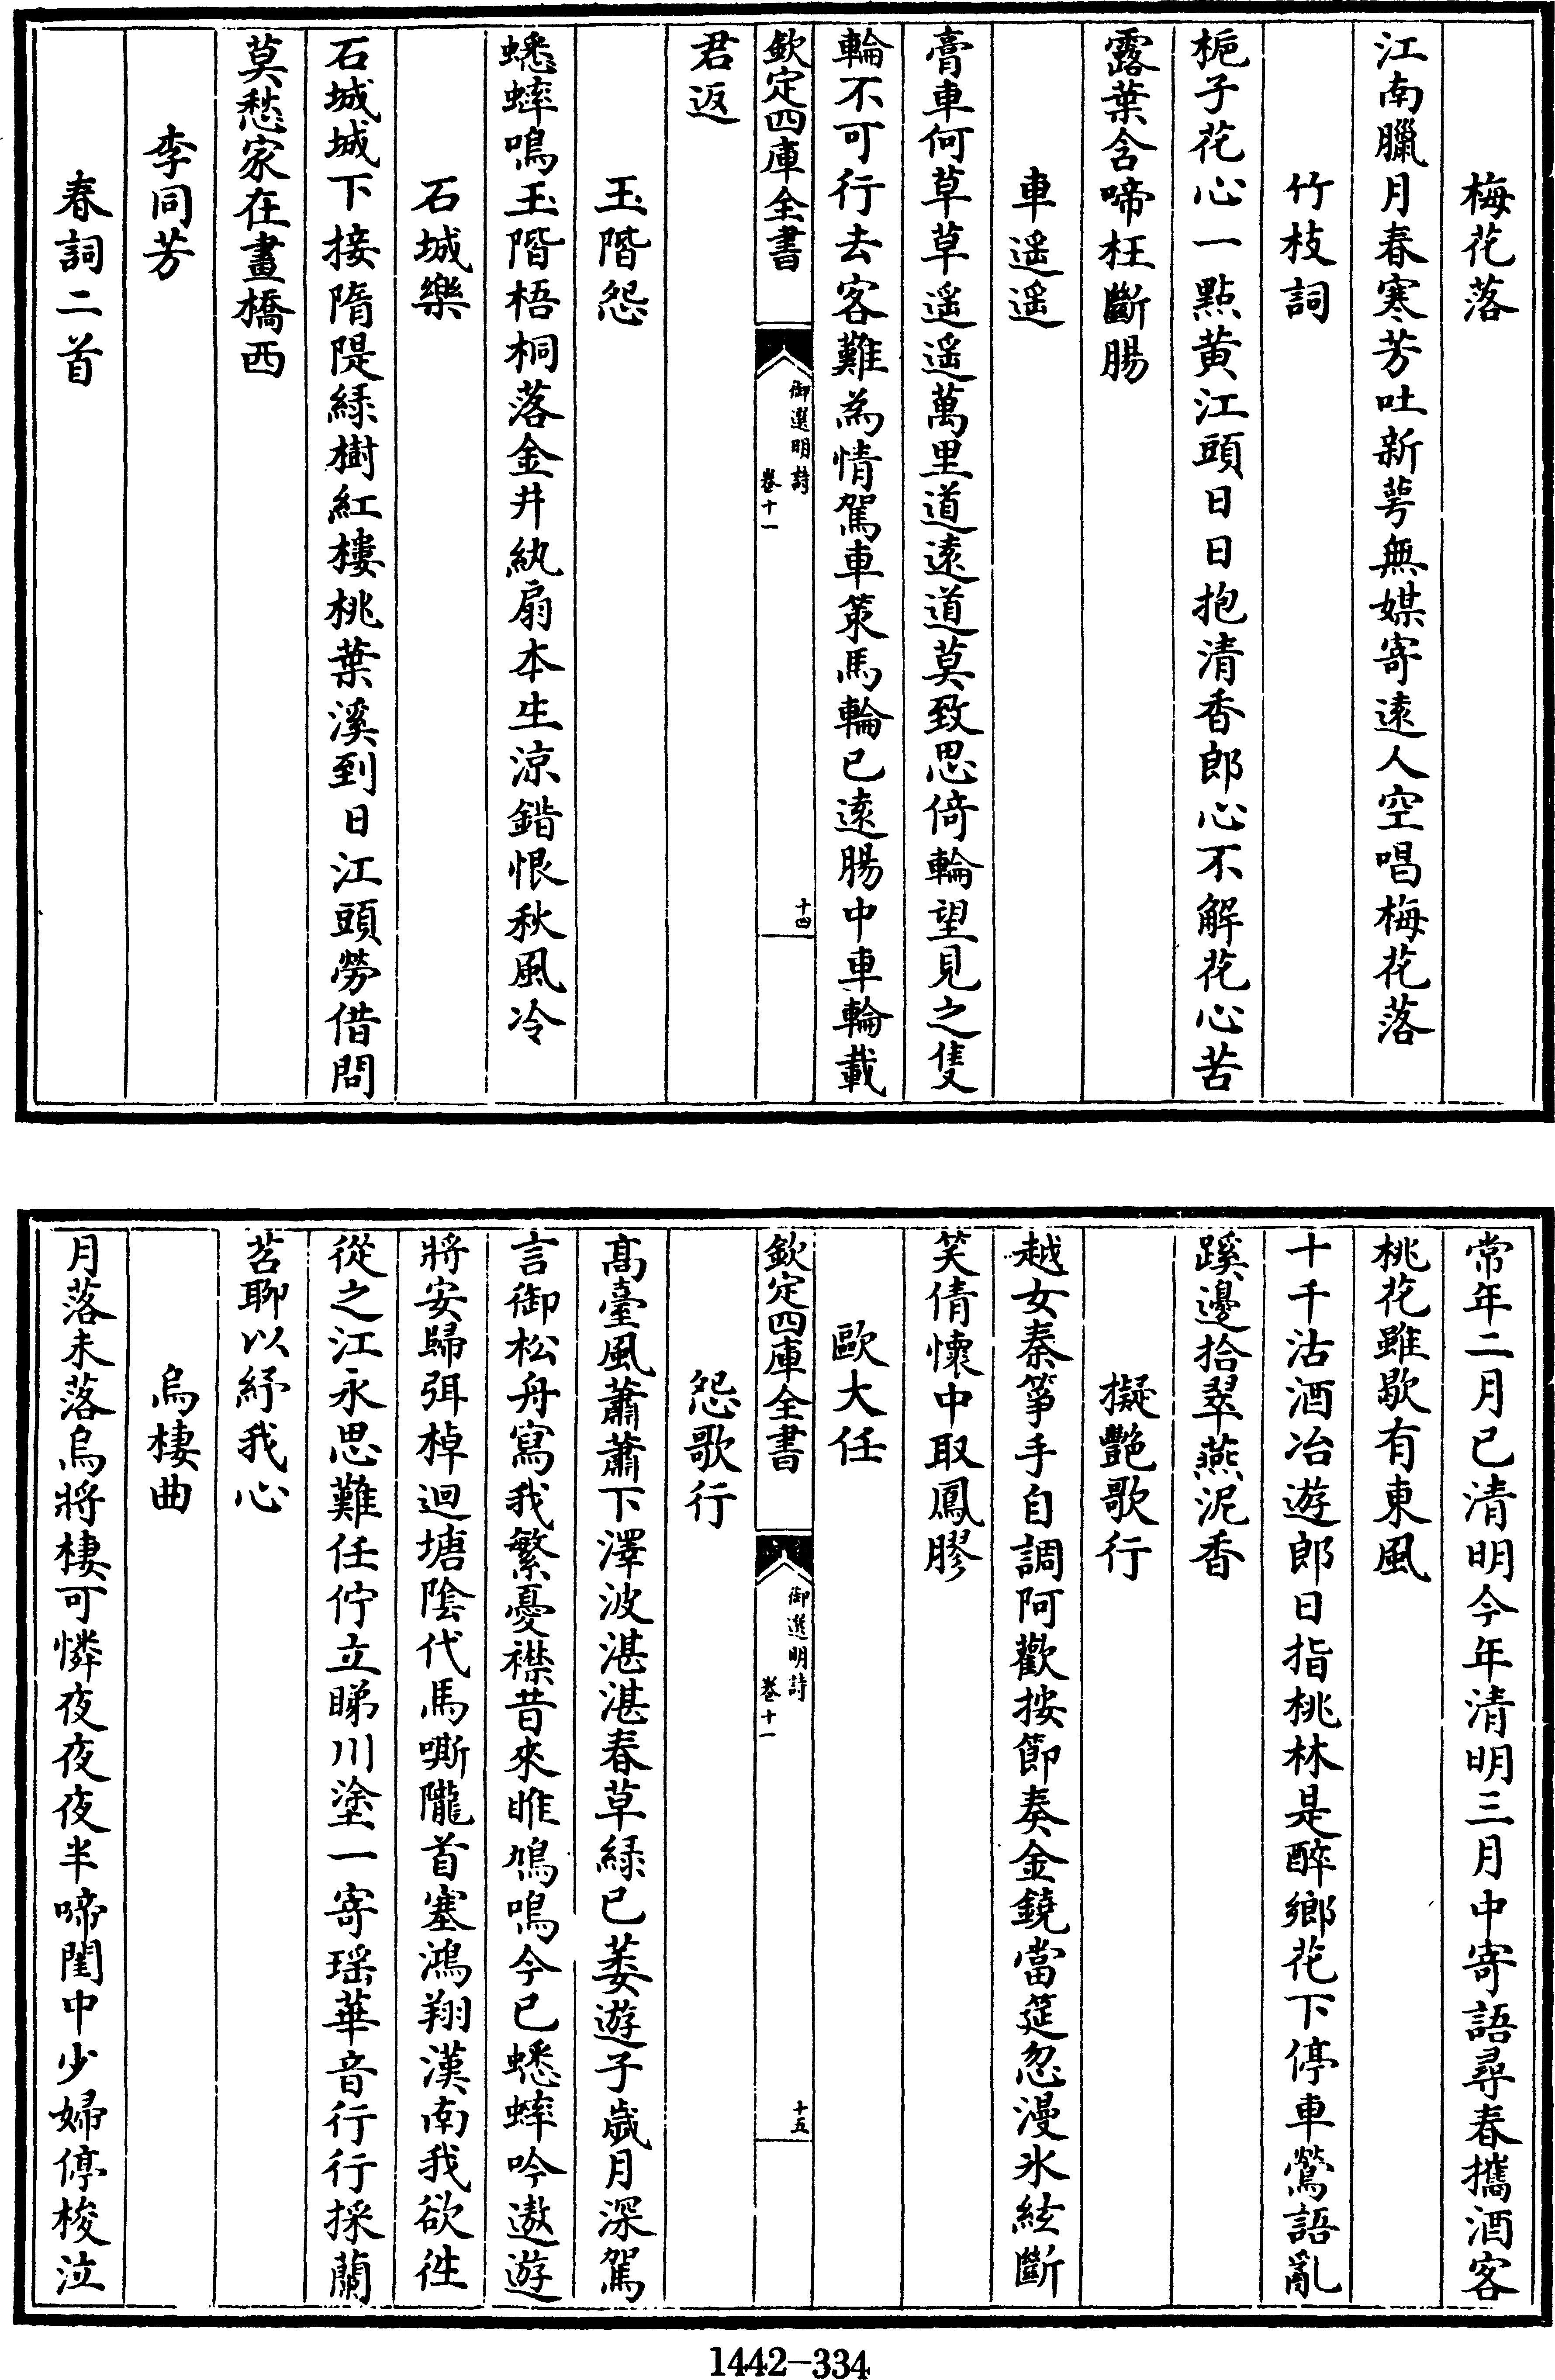 梅花落
江南臘月春寒芳吐新萼無媒寄遠人空唱梅花落
竹枝詞
梔子花心一點黄江頭日日抱清香郎心不解花心苦
露葉含啼枉斷腸
車遥遥
膏車何草草遥遥萬里道遠道莫致思倚輪望見之隻
輪不可行去客難為情駕車策馬輪已遠腸中車輪載
欽定四庫全書
御選明詩
卷十一
十四
君返
玉階怨
蟋蟀鳴玉階梧桐落金井紈扇本生涼錯恨秋風冷
石城樂
石城城下接隋隄緑樹紅樓桃葉溪到日江頭勞借問
莫愁家在畫橋西
李同芳
春詞二首
常年二月已清明今年清明三月中寄語尋春攜酒客
桃花雖歇有東風
十千沽酒冶遊郎日指桃林是醉鄉花下停車鶯語亂
蹊邊拾翠燕泥香
擬艷歌行
越女秦箏手自調阿歡按節奏金鐃當筵忽漫氷絃斷
笑倩懷中取鳳膠
歐大任
欽定四庫全書
御選明詩
卷十一
十五
怨歌行
高臺風蕭蕭下澤波湛湛春草緑已萎遊子歲月深駕
言御松舟寫我繁憂襟昔來雎鳩鳴今已蟋蟀吟遨遊
將安歸弭棹迴塘陰代馬嘶隴首塞鴻翔漢南我欲徃
從之江永思難任佇立睇川塗一寄瑶華音行行採蘭
苕聊以紓我心
烏棲曲
月落未落烏將棲可憐夜夜夜半啼閨中少婦停梭泣
1442-334